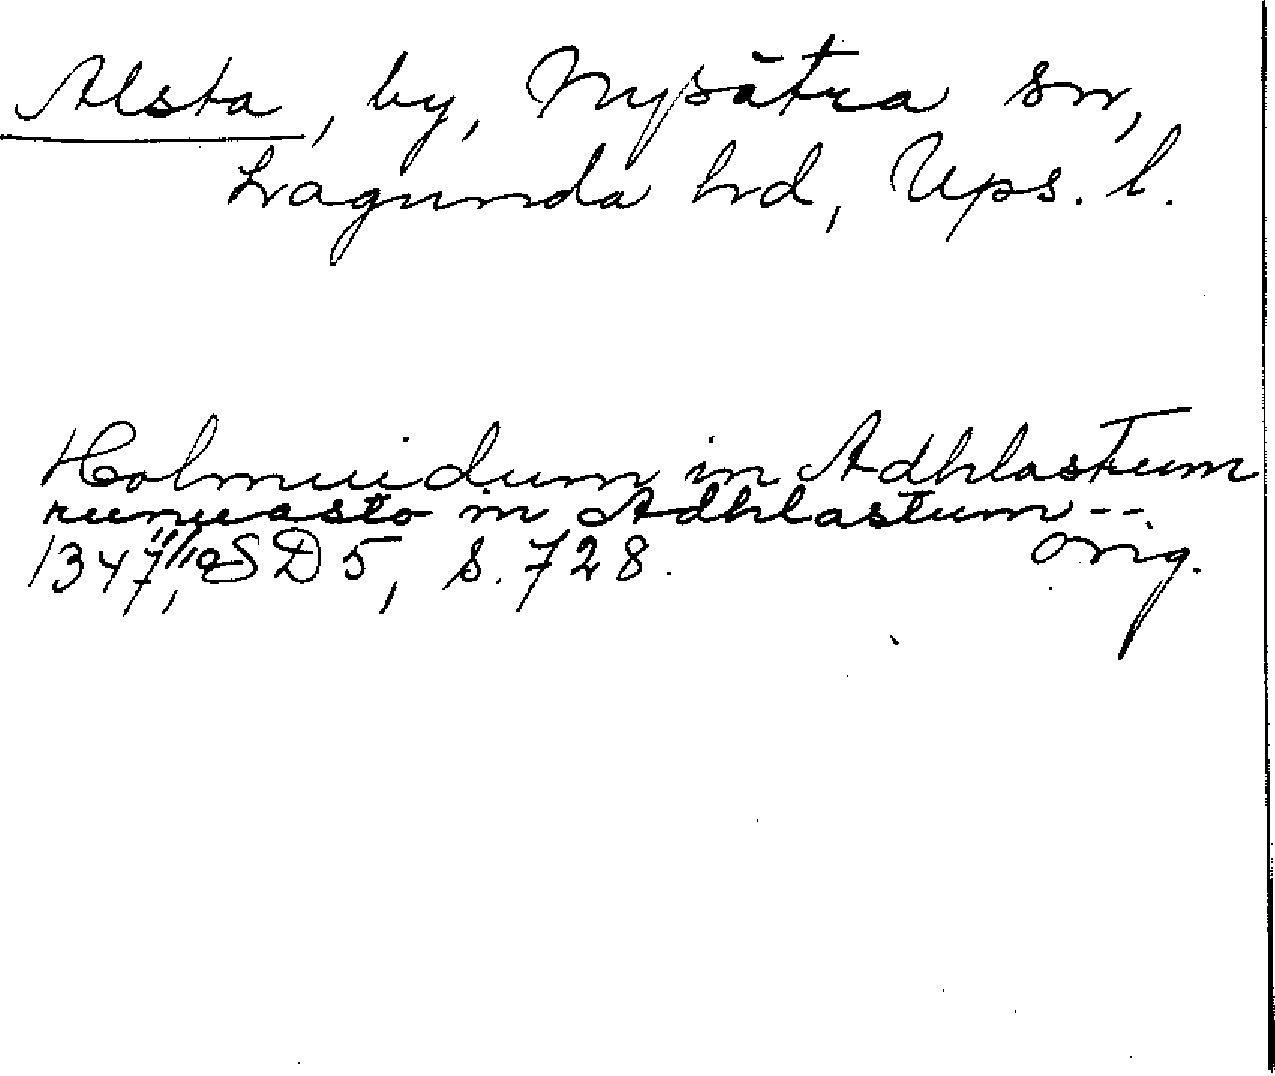 Alsta, by, Nysätra sn,
Lagunda hd, Ups. l.
Holmuidum in Adhlastum
runuasto in Adhlastum --.
1347 11/10, SD 5, s. 728. Orig.